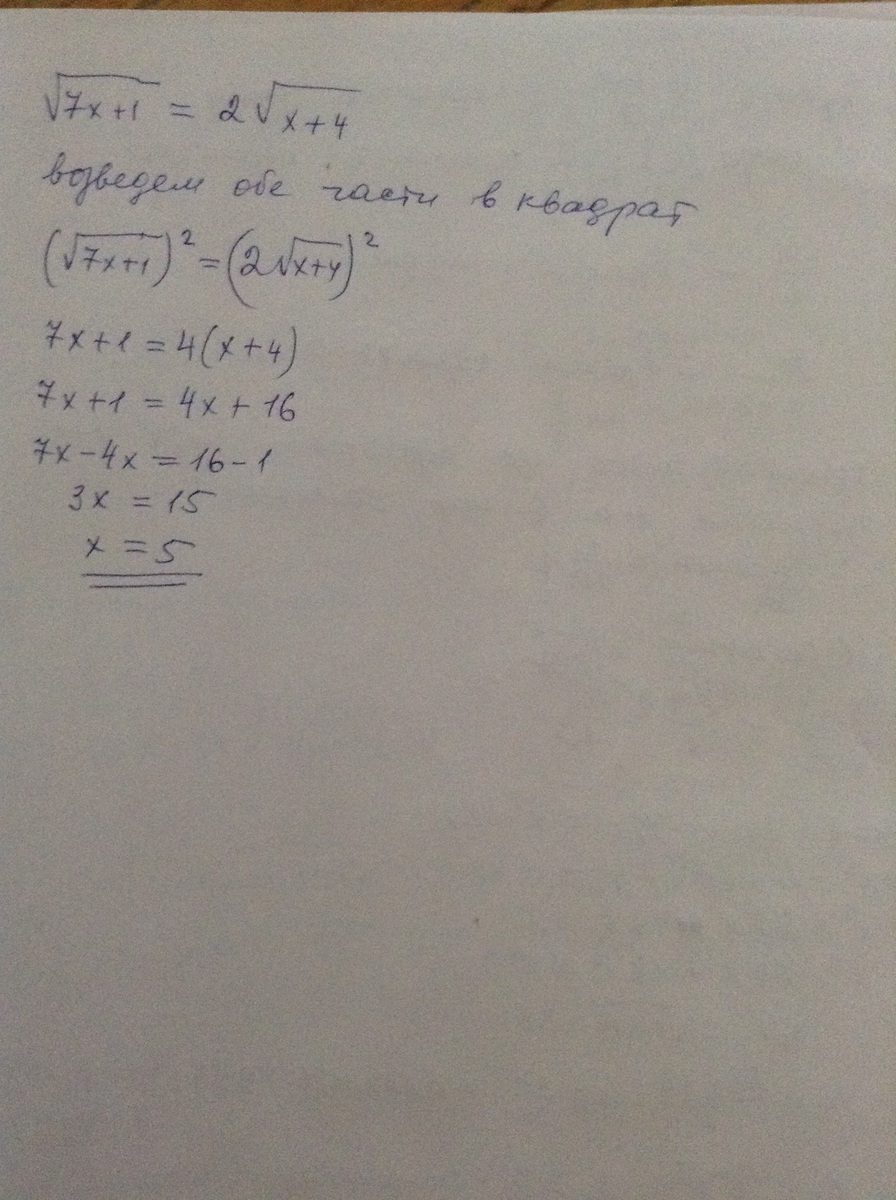 √(7x+1) = 2√(x+4)
возведем обе части в квадрат
(√(7x+1))² = (2√(x+4))²
7x+1 = 4(x+4)
7x+1 = 4x+16
7x-4x = 16-1
3x = 15
x = 5